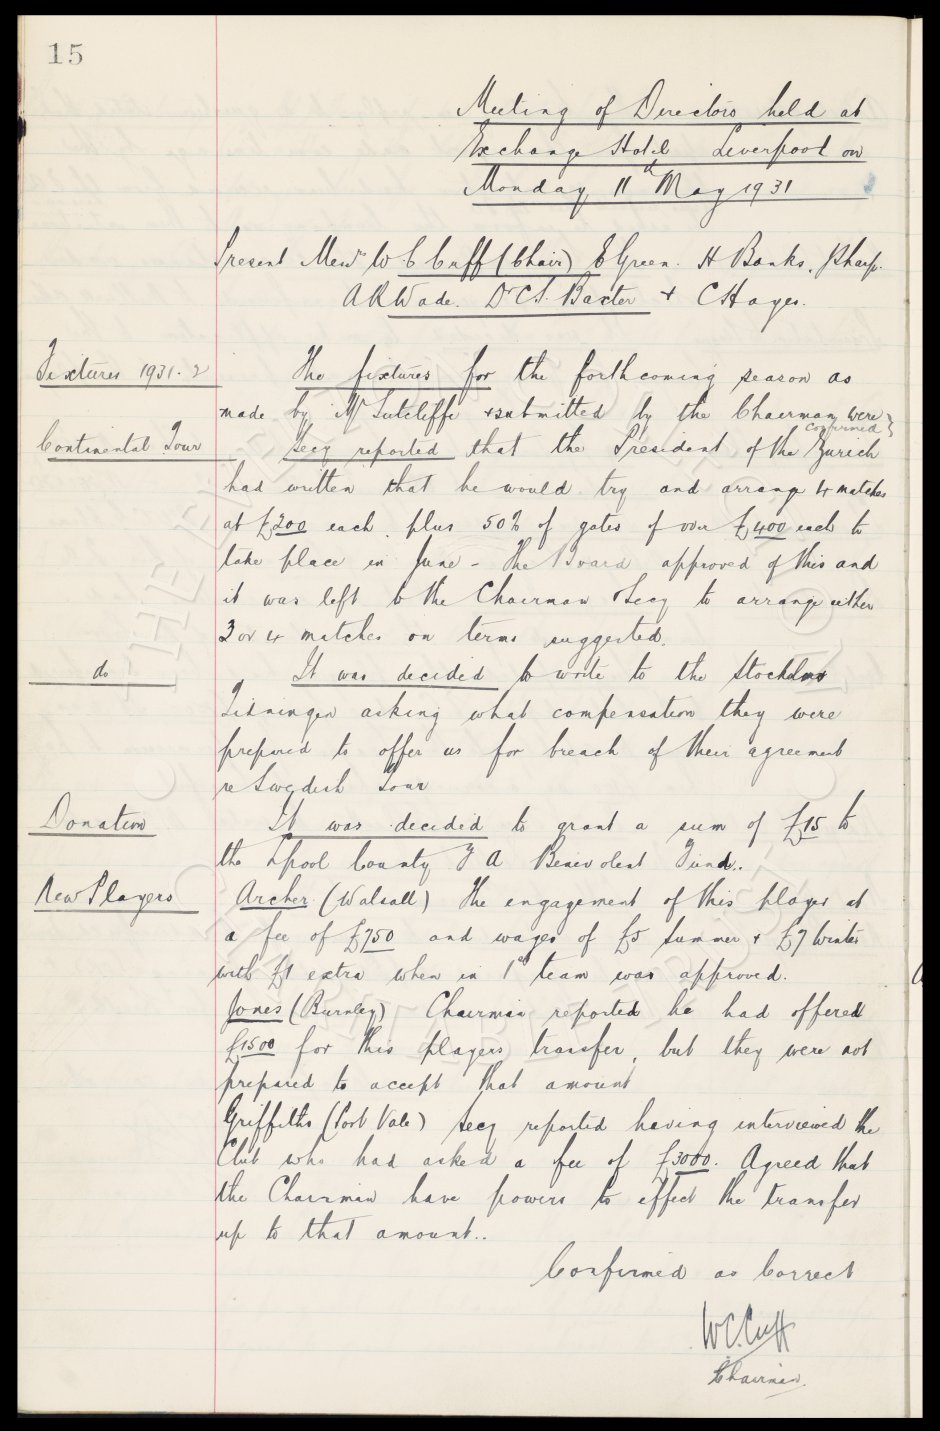 15
Meeting of Directors held at
Exchange Hotel Liverpool on
Monday 11th May 1931
Present Messrs W C Cuff (Chair) E Green. H Banks. J Sharp.
A R Wade. Dr C S. Baxter + C Hayes.
Fixtures 1931.2
The fixtures for the forthcoming season as
made by Mr Sutcliffe + submitted by the Chairman were
confirmed
Continental Tour
Secy reported that the President of the Zurich
had written that he would try and arrange 4 matches
at £200 each plus 50% of gates if over £400 each to
take place in June - The Board approved of this and
it was left to the Chairman + Secy to arrange either
3 or 4 matches on terms suggested.
do
It was decided to write to the
Tidningen asking what compensation they were
prepared to offer us for breach of their agreement
re Swedish Tour
Donation
It was decided to grant a sum of £15 to
the Lpool County F A Benevolent Fund..
New Players
Archer (Walsall) The engagement of this player at
a fee of £750 and wages of £5 Summer + £7 Winter
with £1 extra when in 1st team was approved.
Jones (Burnley) Chairman reported he had offered
£1500 for this players transfer, but they were not
prepared to accept that amount
Griffiths (Port Vale) Secy reported having interviewed the
Club who had asked a fee of £3000. Agreed that
the Chairman have powers to effect the transfer
up to that amount..
Confirmed as Correct
W.C. Cuff
Chairman.